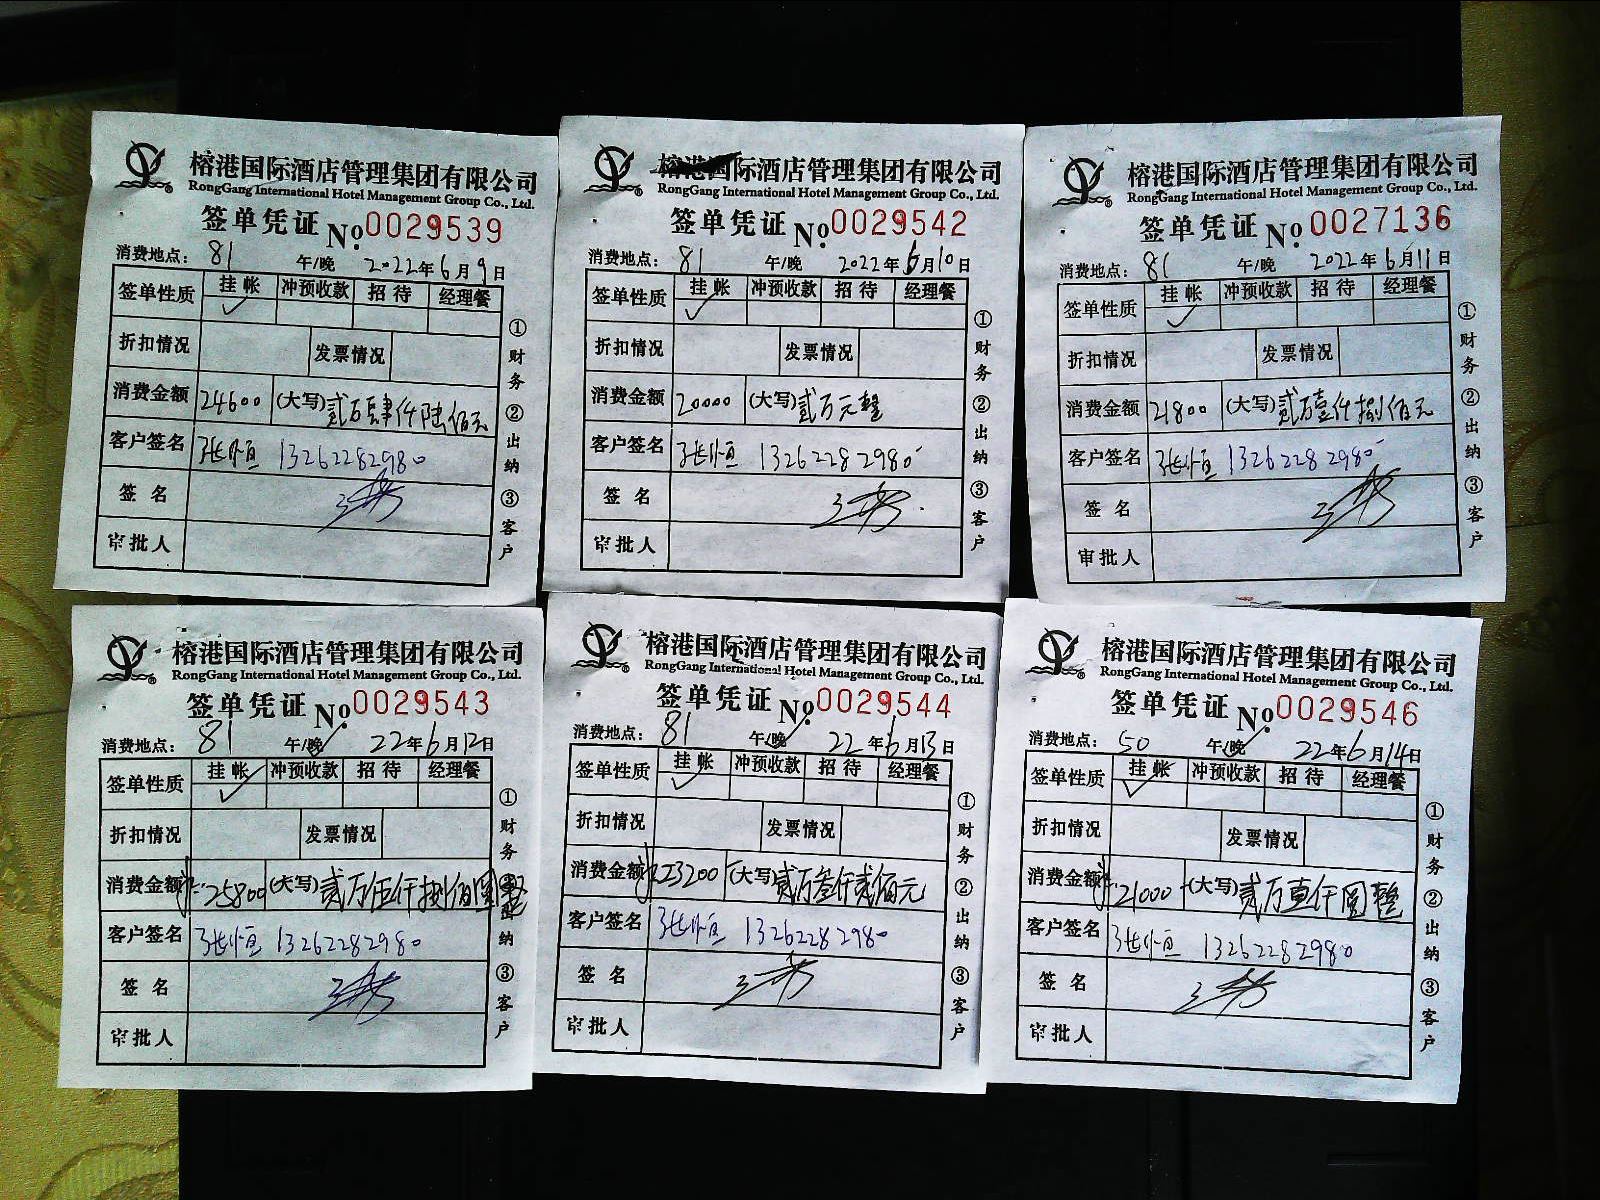 榕港国际酒店管理集团有限公司
RongGang International Hotel Management Group Co., Ltd.
签单凭证 No. 0029539
消费地点: 81 午/晚 2022年6月9日
签单性质 挂帐 冲预收款 招待 经理餐
✓
折扣情况 发票情况
消费金额 24600 (大写) 贰万肆仟陆佰元
客户签名 张恒 13262282980
签名
审批人
①财务 ②出纳 ③客户
榕港国际酒店管理集团有限公司
RongGang International Hotel Management Group Co., Ltd.
签单凭证 No. 0029542
消费地点: 81 午/晚 2022年6月10日
签单性质 挂帐 冲预收款 招待 经理餐
✓
折扣情况 发票情况
消费金额 20000 (大写) 贰万元整
客户签名 张恒 13262282980
签名
审批人
①财务 ②出纳 ③客户
榕港国际酒店管理集团有限公司
RongGang International Hotel Management Group Co., Ltd.
签单凭证 No. 0027136
消费地点: 81 午/晚 2022年6月11日
签单性质 挂帐 冲预收款 招待 经理餐
✓
折扣情况 发票情况
消费金额 21800 (大写) 贰万壹仟捌佰元
客户签名 张恒 13262282980
签名
审批人
①财务 ②出纳 ③客户
榕港国际酒店管理集团有限公司
RongGang International Hotel Management Group Co., Ltd.
签单凭证 No. 0029543
消费地点: 81 午/晚 22年6月12日
签单性质 挂帐 冲预收款 招待 经理餐
✓
折扣情况 发票情况
消费金额 25800 (大写) 贰万伍仟捌佰圆整
客户签名 张恒 13262282980
签名
审批人
①财务 ②出纳 ③客户
榕港国际酒店管理集团有限公司
RongGang International Hotel Management Group Co., Ltd.
签单凭证 No. 0029544
消费地点: 81 午/晚 22年6月13日
签单性质 挂帐 冲预收款 招待 经理餐
✓
折扣情况 发票情况
消费金额 23200 (大写) 贰万叁仟贰佰元
客户签名 张恒 13262282980
签名
审批人
①财务 ②出纳 ③客户
榕港国际酒店管理集团有限公司
RongGang International Hotel Management Group Co., Ltd.
签单凭证 No. 0029546
消费地点: 50 午/晚 22年6月14日
签单性质 挂帐 冲预收款 招待 经理餐
✓
折扣情况 发票情况
消费金额 21000 (大写) 贰万壹仟圆整
客户签名 张恒 13262282980
签名
审批人
①财务 ②出纳 ③客户